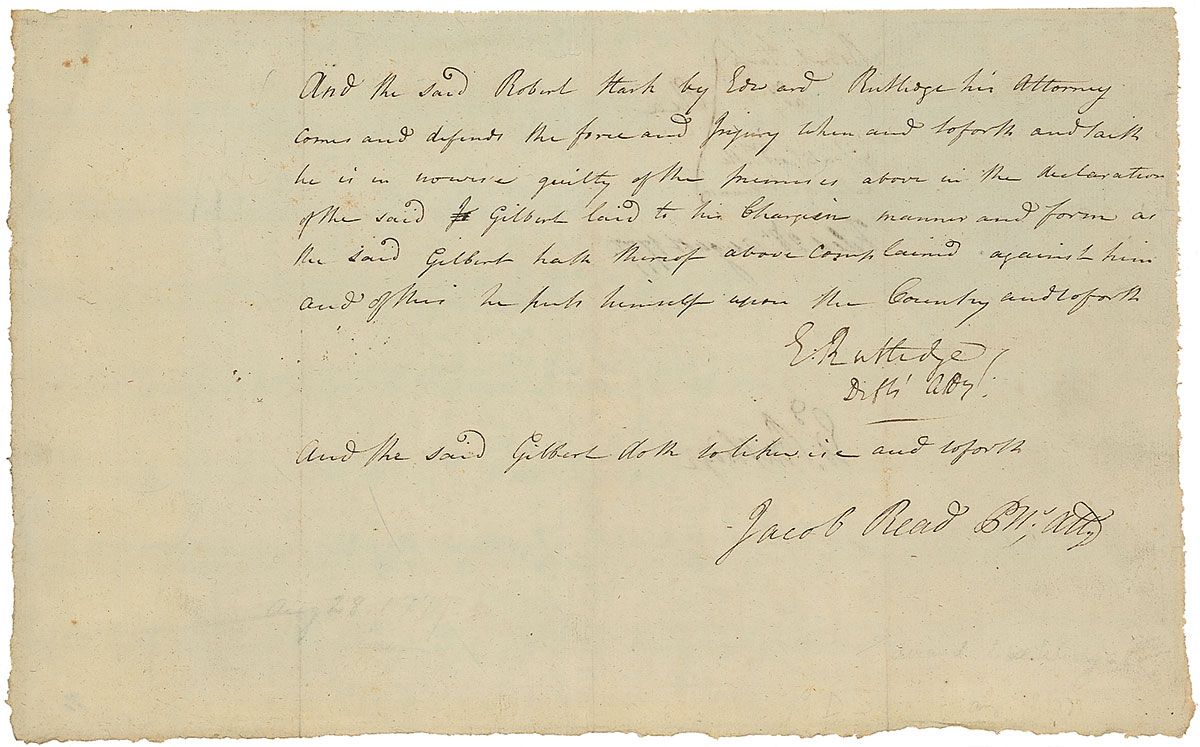 And the said Robert Stark by Edward Rutledge his Attorney
comes and defends the force and Injury when and soforth and saith
he is in nowise guilty of the premises above in the declaration
of the said Gilbert laid to his Charge in manner and form as
the said Gilbert hath thereof above complained against him
and of this he puts himself upon the Country and soforth
E. Rutledge
Defts Atty.
And the said Gilbert doth so likewise and soforth
Jacob Read Plfs. Atty
Aug 28 1